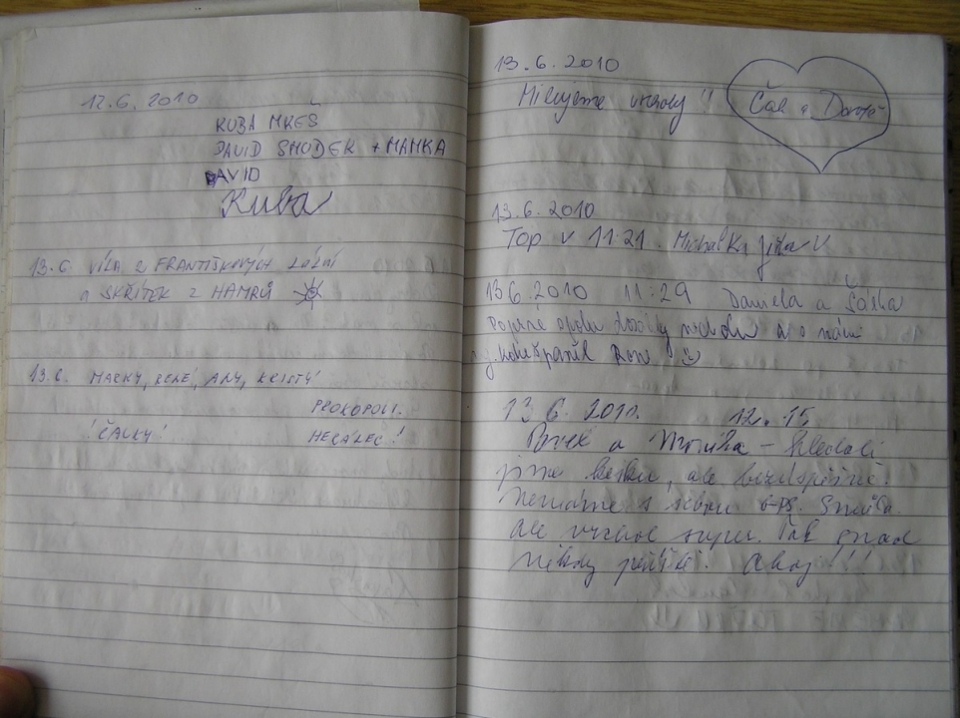 12.6. 2010
KUBA MKEŠ
DAVID SMUDEK + MAMKA
DAVID
Kuba
13.6. VÍLA Z FRANTIŠKOVÝCH LÁZNÍ
A SKŘÍTEK Z HAMRŮ
13.6. MARKY, RENÉ, ANY, KRISTÝ
PROKOPOVI.
! ČAUKY!
HECÁLEC!
13.6.2010
Milujeme vrcholy!!
Čak a
13.6.2010
Top v 11:21. Michalka
13 6.2010 11:29 Daniela a Šárka
a s námi
13 6. 2010. 12.15
a – hledali
jsme kešku, ale bezúspěšně.
Nemáme s sebou GPS. Smůla.
Ale vrchol super. Tak snad
někdy příště. Ahoj!!!